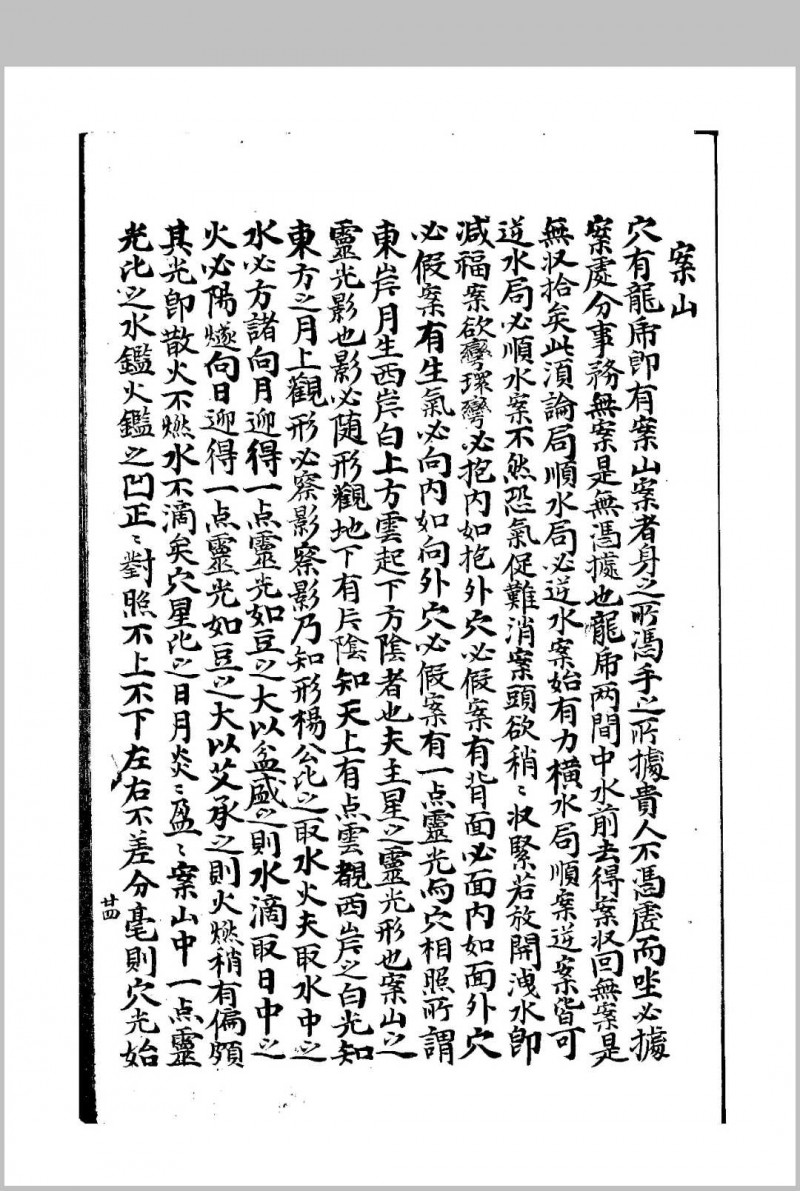 案山
穴有龍席即有案山案者身之所馮手之所據貴人不馮虛而坐必據
案處分事務無案是無馮據也龍席两間中水前去得案収回無案是
無収拾矣此湏論局順水局必逆水案始有力橫水局順案逆案皆可
逆水局必順水案不然恐氣促難消案頭欲稍〻収緊若放開洩水即
减福案欲彎環彎必抱内如抱外穴必假案有背面必面内如面外穴
必假案有生氣必向内如向外穴必假案有一点靈光與穴相照所謂
東岸月生西岸白上方雲起下方陰者也夫主星之靈光形也案山之
靈光影也影必随形觀地下有片陰知天上有点雲覩西岸之白光知
東方之月上觀形必察影察影乃知形楊公比之取水火夫取水中之
水必方諸向月迎得一点靈光如豆之大以盆盛之則水滴取日中之
火必陽燧向日迎得一点靈光如豆之大以艾承之則火燃稍有偏頗
其光即散火不燃水不滴矣穴星比之日月炎〻盈〻案山中一点靈
光比之水鑑火鑑之凹正〻對照不上不下左右不差分毫則穴光始
廿四